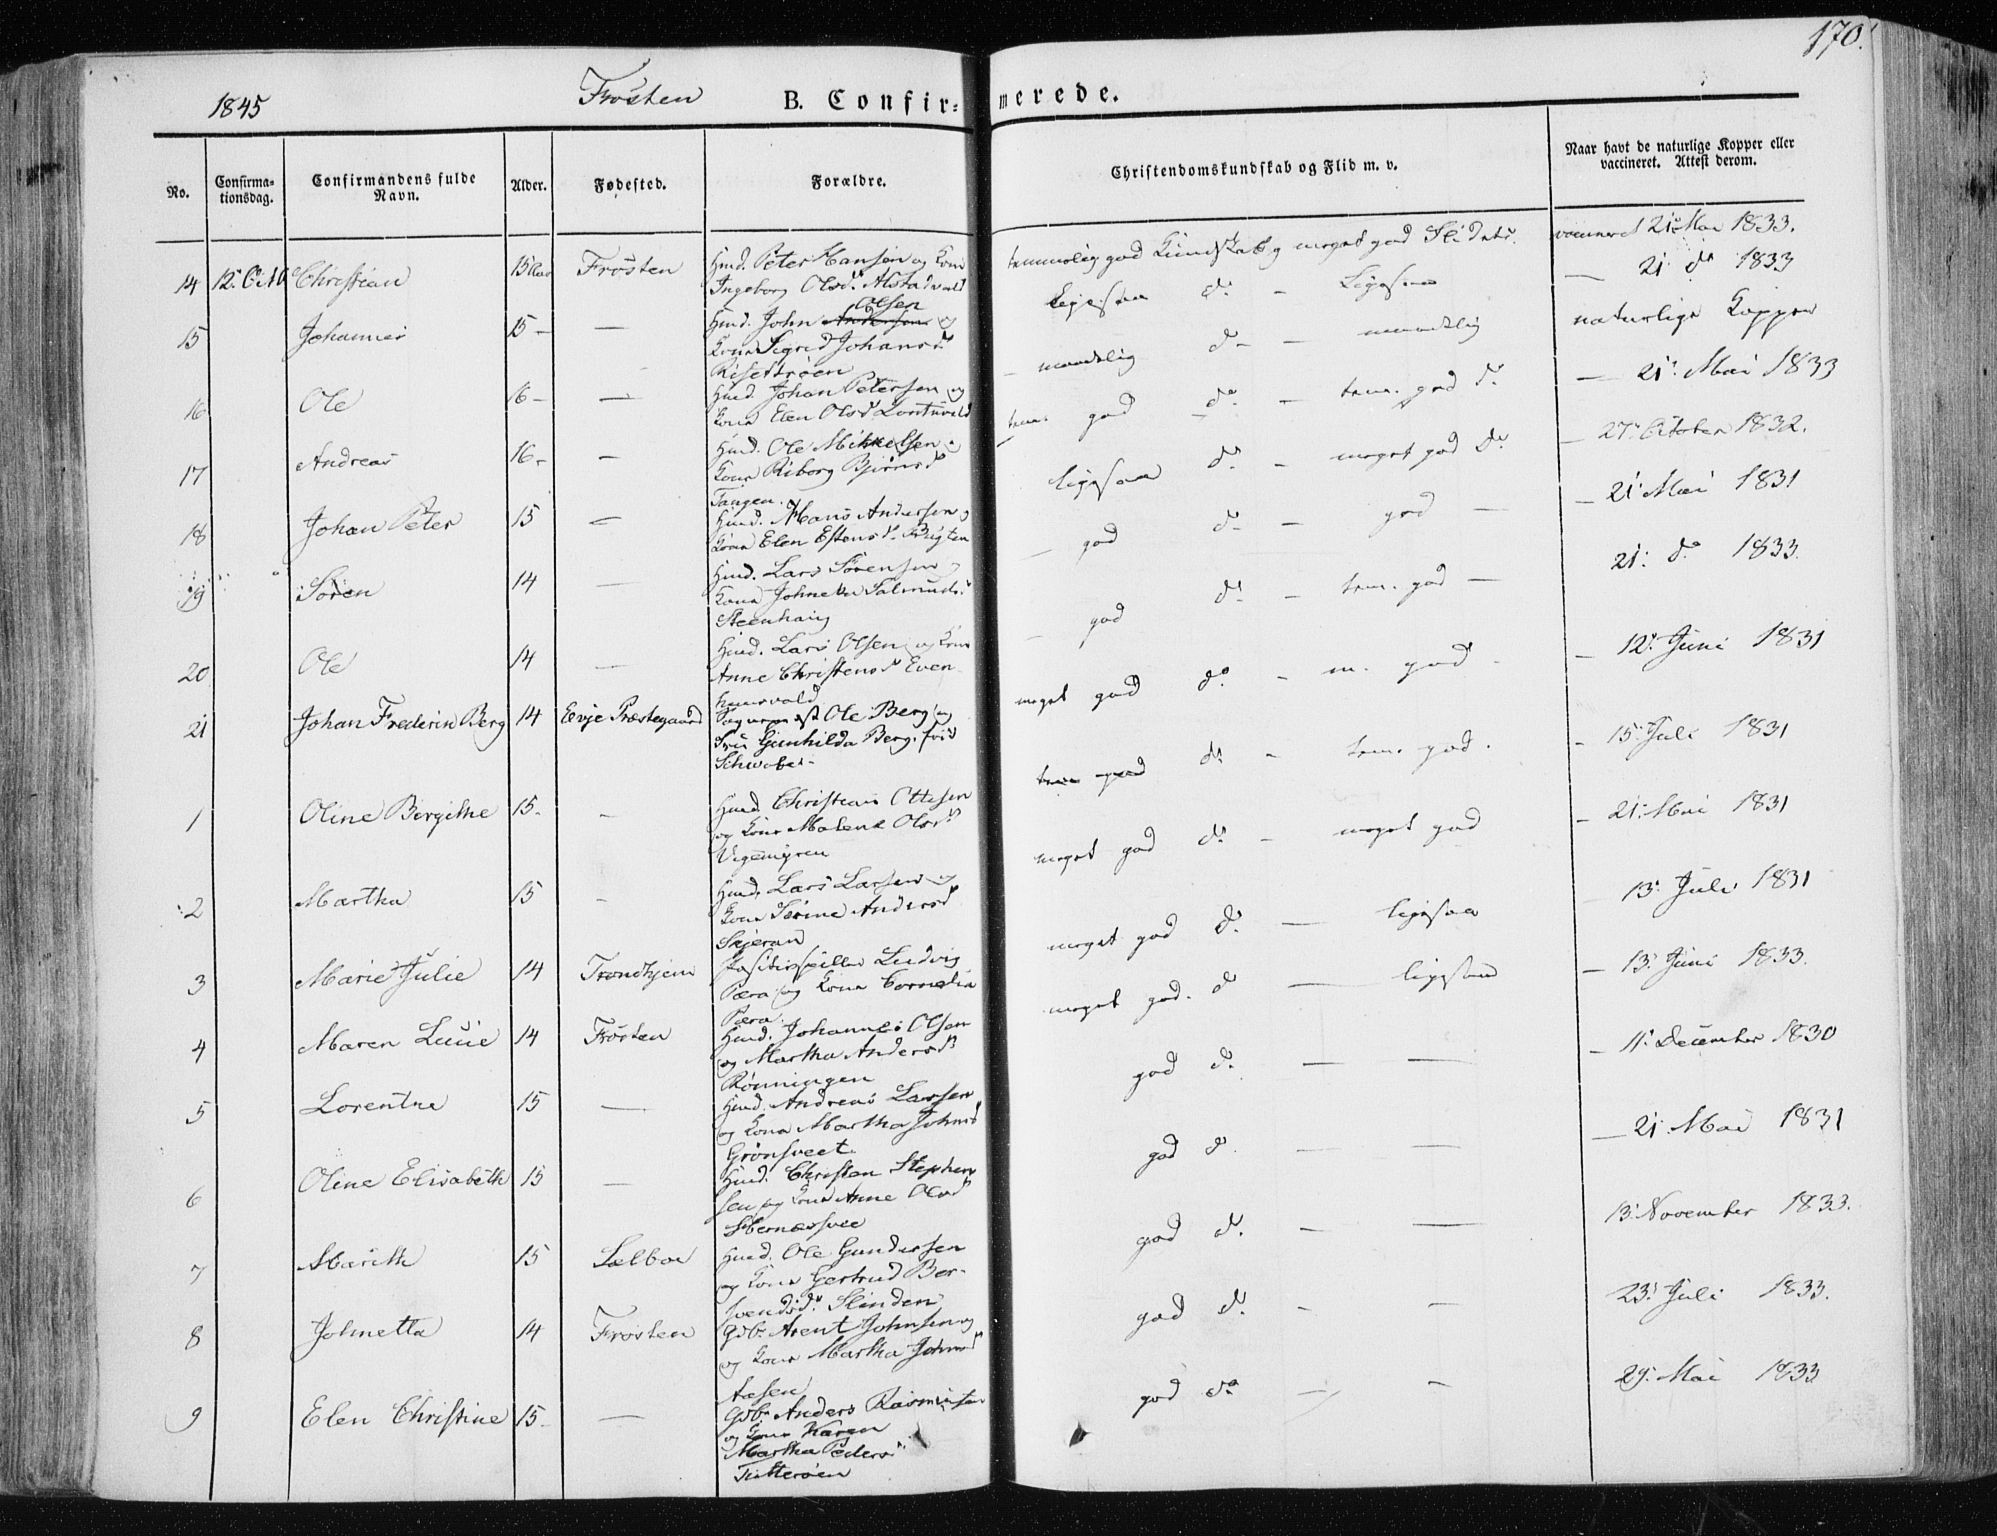 170.
1845 Frosten B. Confir= merede.
No. Confirma= tionsdag. Confirmandens fulde Navn. Alder. Fødested. Forældre. Christendomskundskab og Flid m. v. Naar havt de naturlige Kopper eller vaccineret. Attest derom.
14 12. Octb Christian 15 Aar Frosten Huusm. Peter Hansen og Kone temmelig god Kundskab og meget god Flid etc. vaccineret 21 Mai 1833.
Ingeborg Olsd. Alstadvald
15 Johannes 15 — — Huusm. John Andersen Olsen og Ligesaa do — Ligesaa — 21 do 1833
Kone Sigrid Johansd.
Risettrøen
16 Ole 16 — — Huusm. Johan Petersen og — maadelig do — maadelig naturlige Kopper
Kone Elen Olsd
17 Andreas 16 — — Huusm. Ole Mikkelsen og tem. god do — tem. god do — 21. Mai 1833
Kone Riborg Bjørnsd
Tangen.
18 Johan Peter 15 — Huusm. Hans Andersen og ligesaa do — meget god do — 27. October 1832.
Kone Elen Estensd.
19 Søren 14 — Huusm. Lars Sørensen — god do — god — — 21 Mai 1831
Kone Salmunds.
Steenhaug
20 Ole 14 — Huusm. Lars Olsen og Kone — god do — tem. god — 21. do 1833.
Anne Christensd Even-
huusvald
21 Johan Frederik Berg 14 Evje Præstegaard Sogneprest Ole Berg og meget god do — m. god — — 12. Juni 1831
Fru Gunhilda Berg, fød
Schwabe.-
1 Oline Bergithe 15. — Huusm. Christian Ottesen tem god do — tem. god. — 15. Juli 1831
og Kone Malene Olsd
Vigemyren
2 Martha 15 — Huusm. Lars Larsen og meget god do — meget god — 21. Mai 1831
Kone Sirine Andersd
Skjeran
3 Marie Julie 14 Trondhjem Ludvig meget god do — ligesaa 13. Juli 1831
Pæra og Kone Cornelia
Pæra.
4 Maren Lucie 14 Frosten Huusm. Johannes Olsen meget god. do — ligesaa — 13. Juni 1833.
og Martha Andersd
Rønningen
5 Lorentne 15 — Huusm. Andreas Larsen god do — — — 11. December 1830
og Kone Martha Johnsd
Grønsveet
6 Oline Elisabeth 15 — Huusm. Christen Stephen god do. — — — 21. Mai 1831
sen og Kone Anne Olsd
7 Marith 15 Sælboe Huusm. Ole Gundersen god do. — — 13. November 1833.
og Kone Gertrud Ber-
Slinden
8 Johnetta 14 Frosten Gdb. Arent Johnsen og god do. — — 23. Juli 1833.
og Kone Martha Johnsd
Aasen
9 Elen Christine 15 — — Gdb. Anders Rasmussen god do — — 29. Mai 1833
og Kone Karen
Martha Peders
Tutterøen